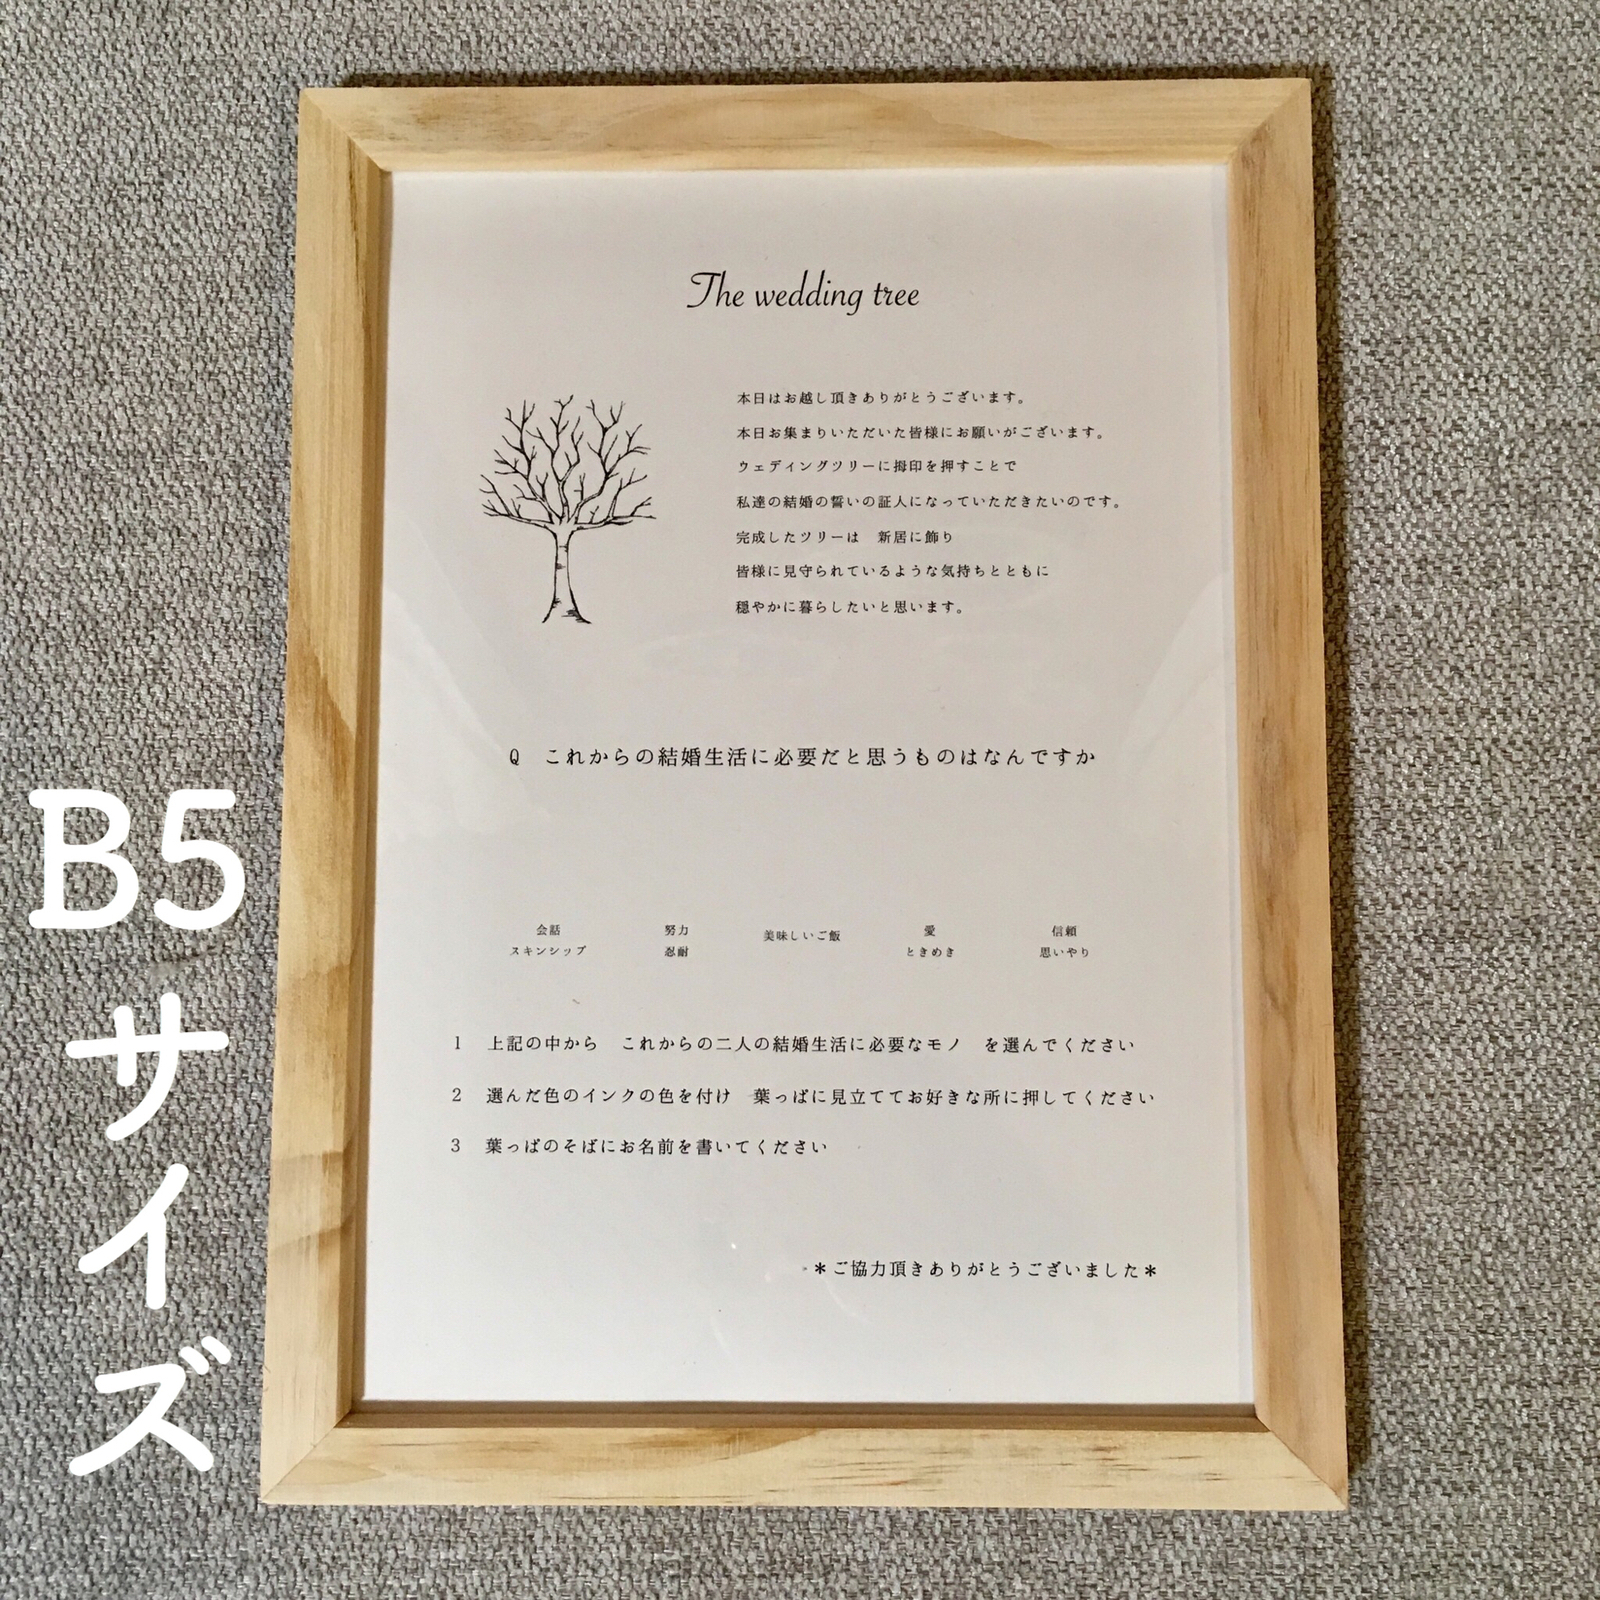 The wedding tree
本日はお越し頂きありがとうございます。
本日お集まりいただいた皆様にお願いがございます。
ウェディングツリーに拇印を押すことで
私達の結婚の誓いの証人になっていただきたいのです。
完成したツリーは　新居に飾り
皆様に見守られているような気持ちとともに
穏やかに暮らしたいと思います。
Q　これからの結婚生活に必要だと思うものはなんですか
会話
スキンシップ
努力
忍耐
美味しいご飯
愛
ときめき
信頼
思いやり
1　上記の中から　これからの二人の結婚生活に必要なモノ　を選んでください
2　選んだ色のインクの色を付け　葉っぱに見立ててお好きな所に押してください
3　葉っぱのそばにお名前を書いてください
＊ご協力頂きありがとうございました＊
B5サイズ